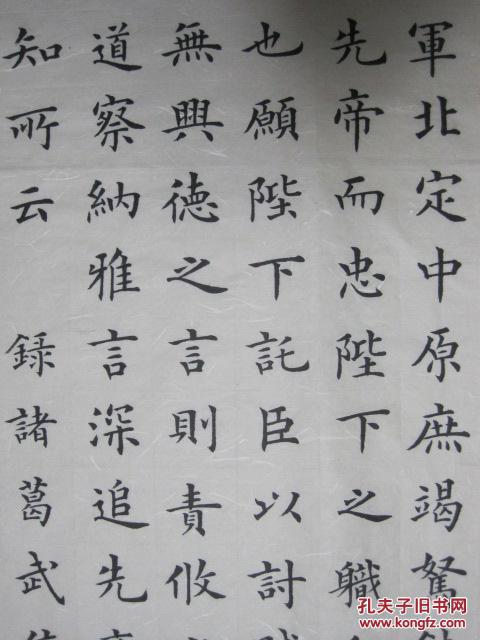 軍北定中原庶竭駑
先帝而忠陛下之職
也願陛下託臣以討
無興德之言則責攸
道察納雅言深追先
知所云 錄諸葛武
孔夫子旧书网
www.kongfz.com